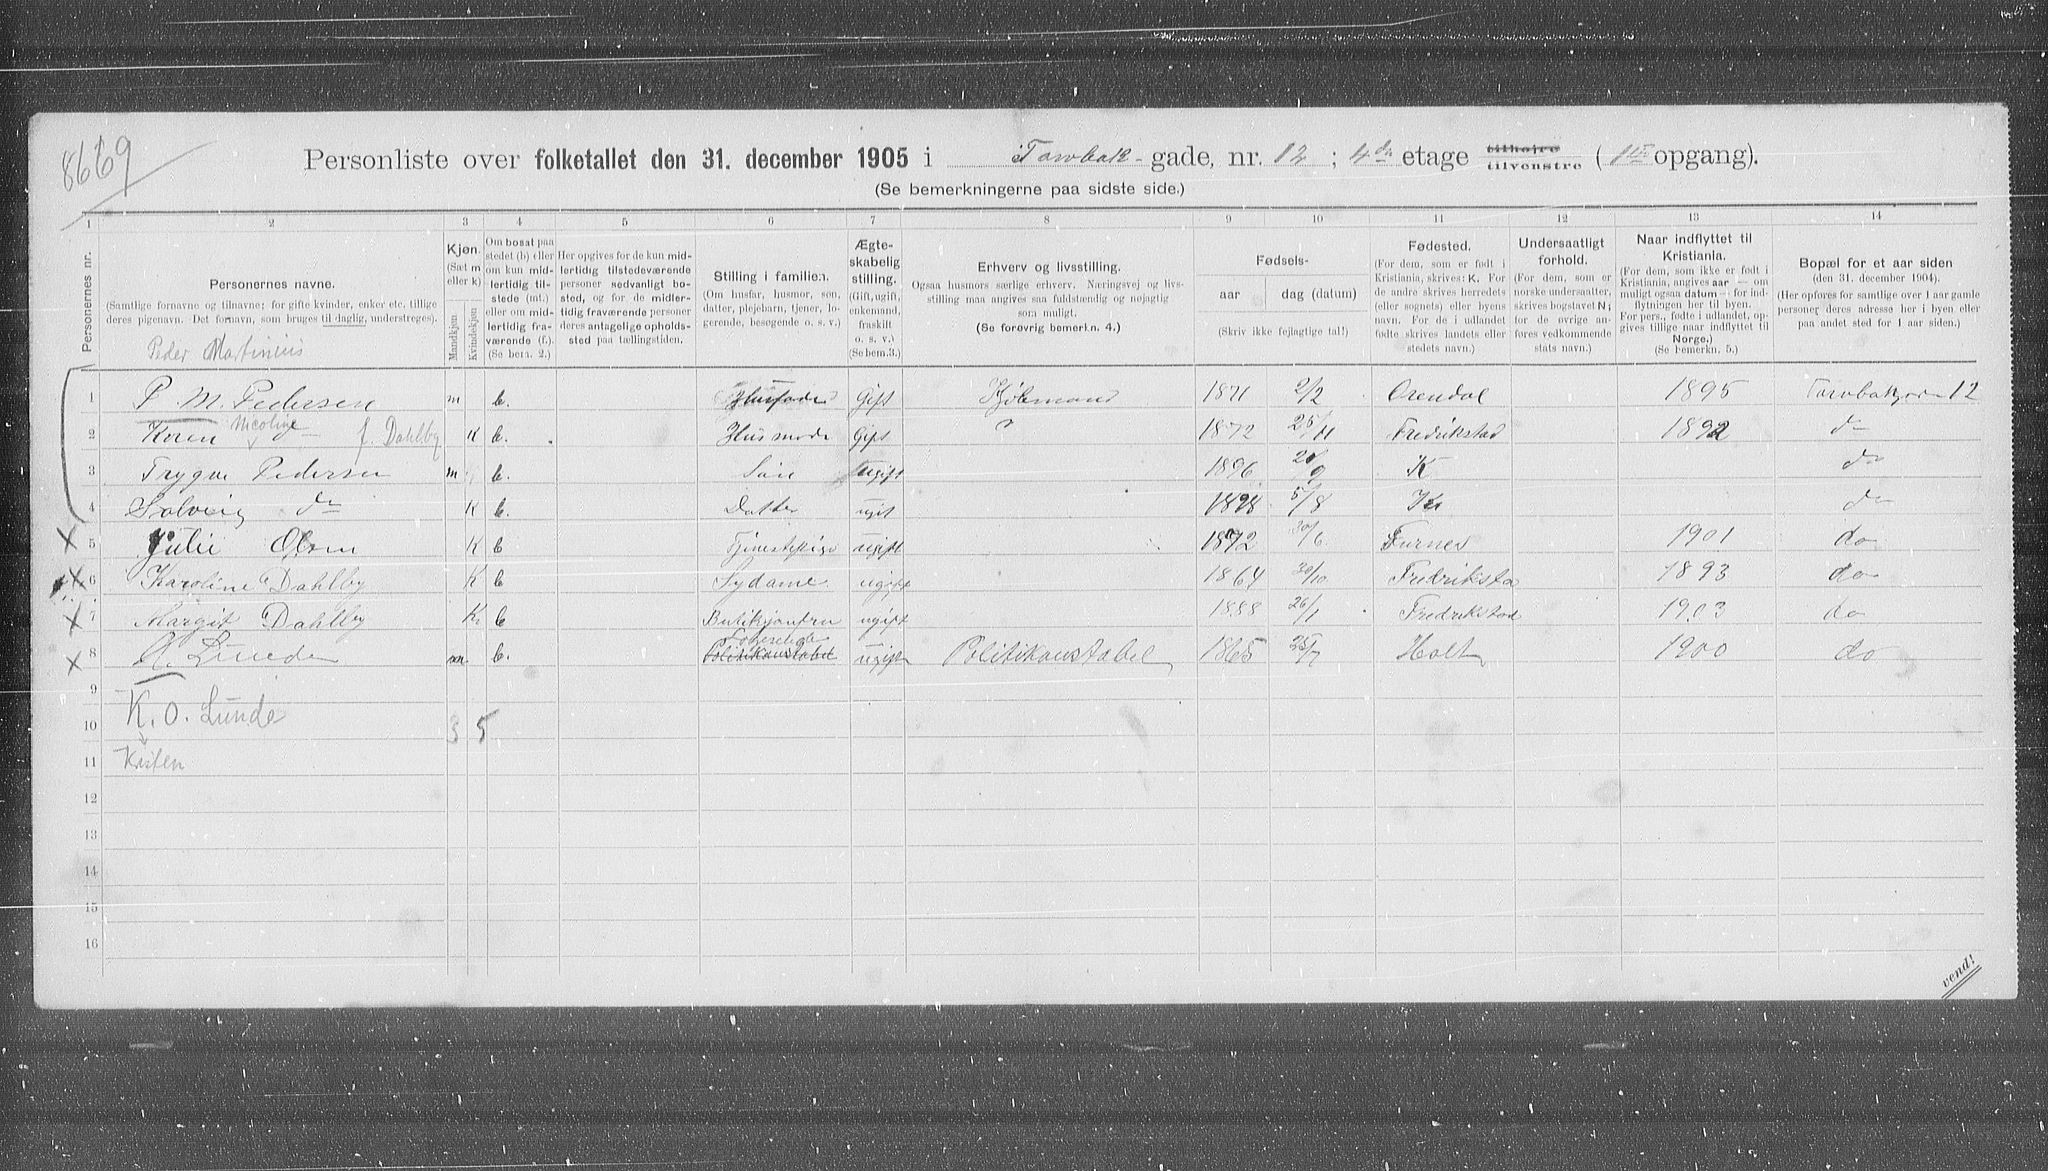 8669
Personliste over folketallet den 31. december 1905 i Torvbak- gade, nr. 12 ; 4de etage tilhøire tilvenstre ( 1ste opgang).
(Se bemerkningerne paa sidste side.)
1 2 3 4 5 6 7 8 9 10 11 12 13 14
Personernes nr.
Personernes navne.
(Samtlige fornavne og tilnavne; for gifte kvinder, enker etc. tillige
deres pigenavn. Det fornavn, som bruges til daglig, understreges).
Peder Martinius
Kjøn.
(Sæt m
eller k)
Mandkjøn
Kvindekjøn
Om bosat paa
stedet (b) eller
om kun mid-
lertidig til-
stede (mt.)
eller om mid-
lertidig fra-
værende (f.)
(Se bem. 2.)
Her opgives for de kun mid-
lertidig tilstedeværende
personer sedvanligt bo-
sted, og for de midler-
tidig fraværende personer
deres antagelige opholds-
sted paa tællingstiden.
Stilling i familien.
(Om husfar, husmor, søn,
datter, plejebarn, tjener, lo-
gerende, besøgende o. s. v.)
Ægte-
skabelig
stilling.
(Gift, ugift,
enkemand,
fraskilt
o. s. v.)
(Se bem.3.)
Erhverv og livsstilling.
Ogsaa husmors særlige erhverv. Næringsvej og livs-
stilling maa angives saa fuldstændig og nøjagtig
som muligt.
(Se forøvrig bemerkn. 4.)
Fødsels-
aar dag (datum)
(Skriv ikke fejlagtige tal!)
Fødested.
(For dem, som er født i
Kristiania, skrives: K. For
de andre skrives herredets
(eller sognets) eller byens
navn. For de i udlandet
fødte skrives landets eller
stedets navn.)
Undersaatligt
forhold.
(For dem, som er
norske undersaatter,
skrives bogstavet N;
for de øvrige an-
føres vedkommende
stats navn.)
Naar indflyttet til
Kristiania.
(For dem, som ikke er født i
Kristiania, angives aar — om
muligt ogsaa datum — for ind-
flytningen her til byen.
For pers., fødte i udlandet, op-
gives tillige naar indflyttet til
Norge.)
(Se bemerkn. 5.)
Bopæl for et aar siden
(den 31. december 1904).
(Her opføres for samtlige over 1 aar gamle
personer deres adresse her i byen eller
paa andet sted for 1 aar siden.)
1 P. M. Pedersen m b. Husfader Gift Kjøbmand 1871 2/2 Orendal 1895 12
2 Karen Nicoline — f. Dahlby K b. Husmode Gift ? 1872 25/11 Fredrikstad 1892 do
3 Trygve Pedersen m b. Søn ugift 1896 20/9 K do
4 Solveig do K b. Datter ugit 1898 5/8 Kr do
5 Julie Olsen K b ugift 1872 30/6 Furnes 1901 do
6 Karoline Dahlby K b Sydame ugift 1864 30/10 Fredriksta 1893 do
7 Margit Dahlby K b ugift 1888 26/1 Fredrikstad 1903 do
8 Lunde m b. Logerende Politikonstabel ugift Politikonstabel 1865 25/7 Holt 1900 do
9
K. O. Lunde
10 3 5
11 Kristen
12
13
14
15
16
vend!